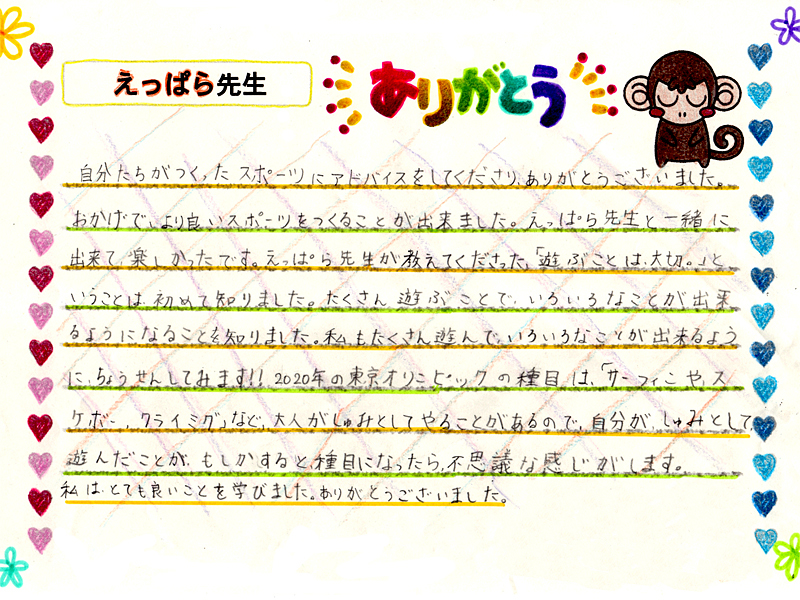 えっぱら先生
ありがとう
自分たちがつくったスポーツにアドバイスをしてくださり、ありがとうございました。
おかげで、より良いスポーツをつくることが出来ました。えっぱら先生と一緒に
出来て、楽しかったです。えっぱら先生が教えてくださった、「遊ぶことは、大切。」と
いうことは、初めて知りました。たくさん遊ぶことで、いろいろなことが出来
るようになることを知りました。私もたくさん遊んで、いろいろなことが出来るよう
に、ちょうせんしてみます!! 2020年の東京オリンピックの種目は、「サーフィンや、ス
ケボー、クライミグ」など、大人がしゅみとしてやることがあるので、自分が、しゅみとして
遊んだことが、もしかすると種目になったら、不思議な感じがします。
私は、とても良いことを学びました。ありがとうございました。